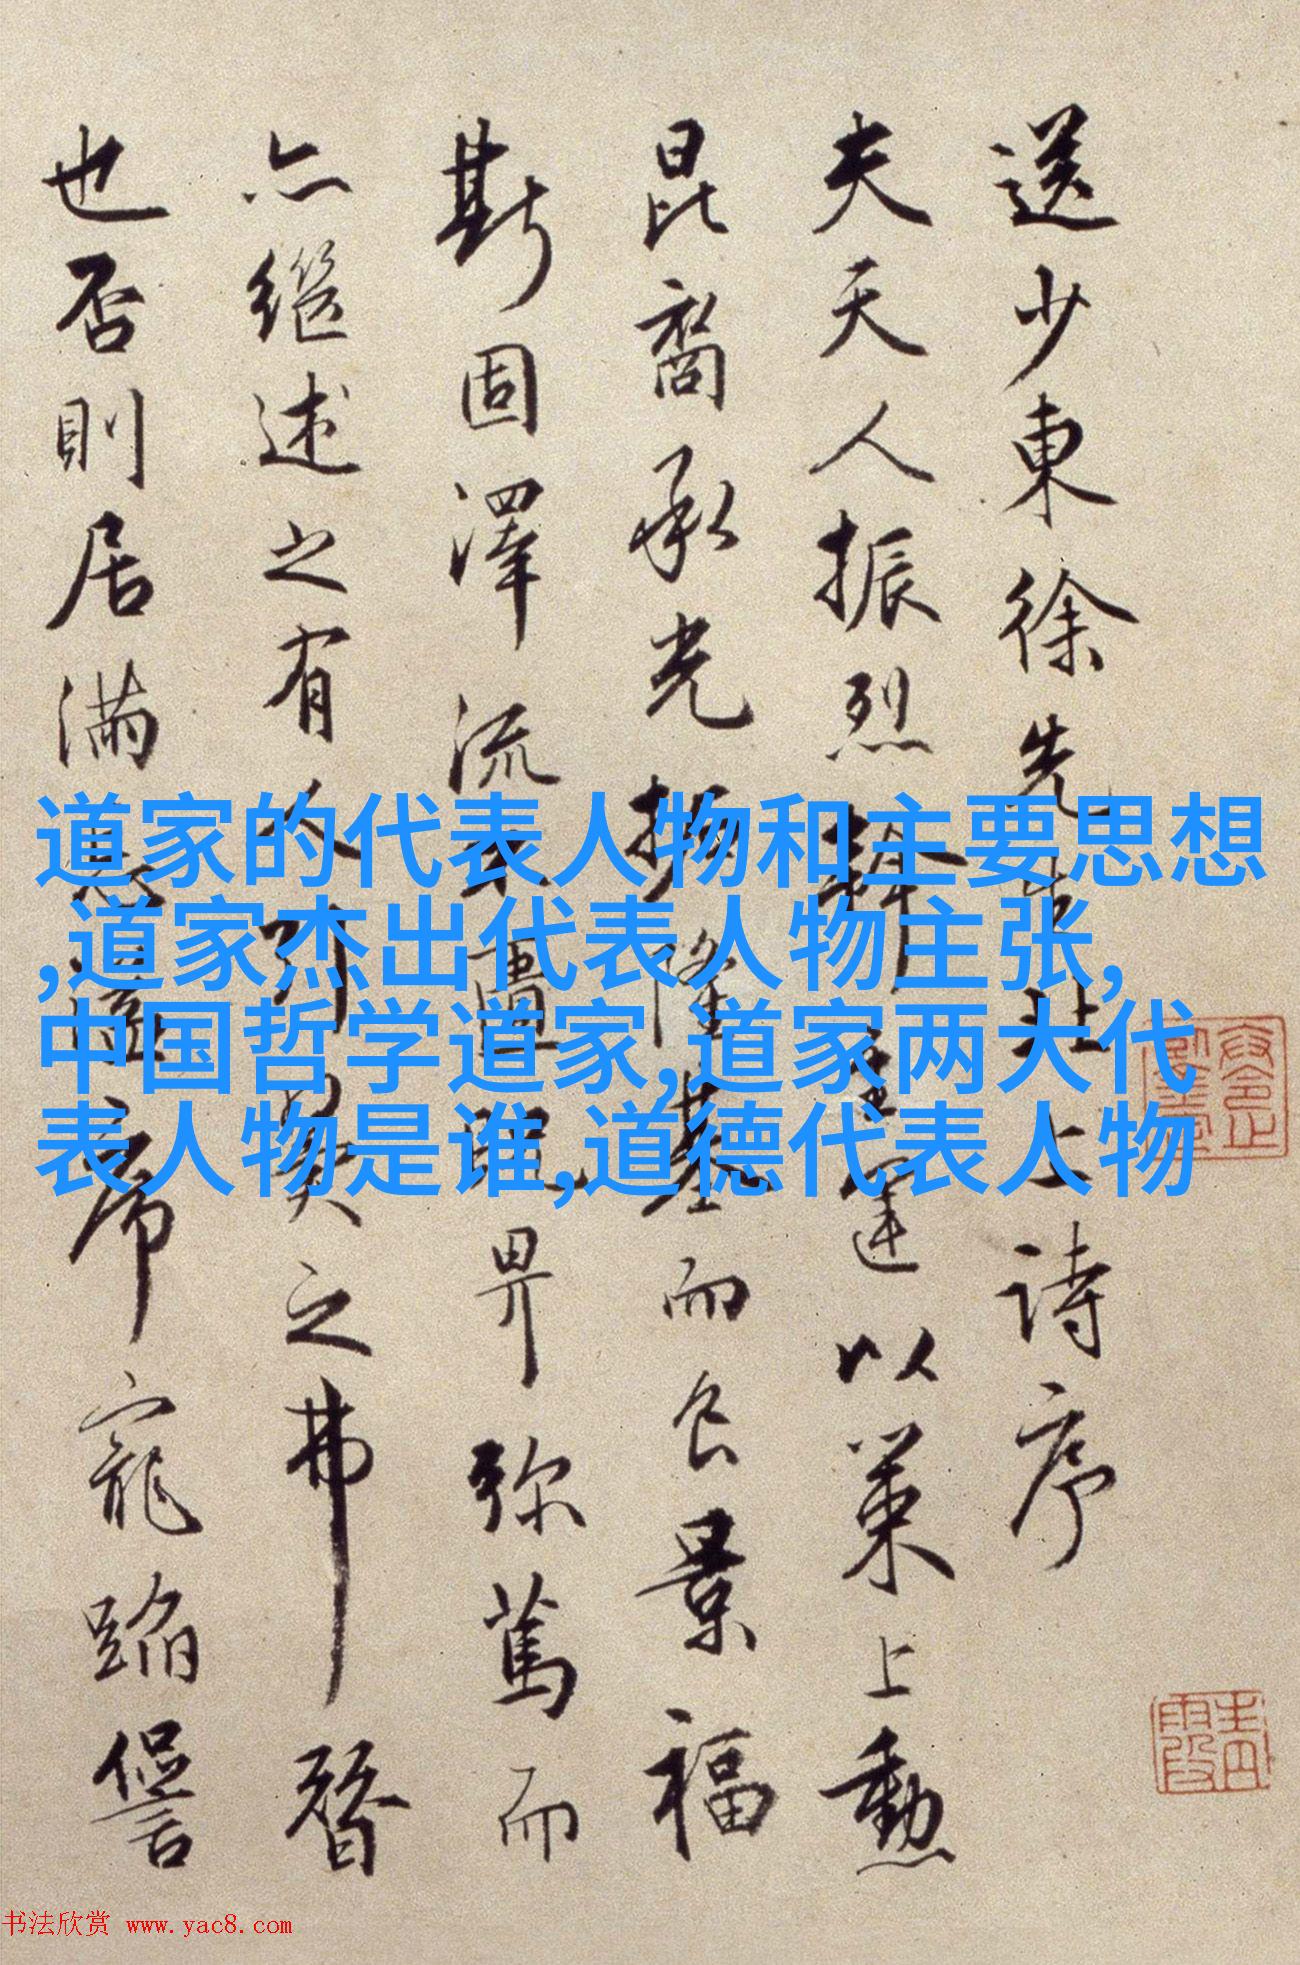 送少東徐先生北上詩序
夫天人振烈
運以策上勳
昆裔承光揚隆基而啓景福
斯固澤流
畀弥篤而
亦继述之有人
之弗替
也否則居满
席寵蹈
道家的代表人物和主要思想
,道家杰出代表人物主张,
中国哲学道家,道家两大代
表人物是谁,道德代表人物
书法欣赏 www.yac8.com